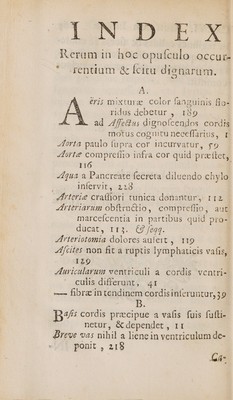 INDEX
Rerum in hoc opusculo occur-
rentium & scitu dignarum.
A.
Aeris mixturæ color sanguinis flo-
ridus debetur , 189
ad Affectus dignoscendos cordis
motus cognitu necessarius, 1
Aorta paulo supra cor incurvatur, 59
Aortæ compressio infra cor quid præstet,
116
Aqua a Pancreate secreta diluendo chylo
inservit, 228
Arteriæ crassiori tunica donantur, 112
Arteriarum obstructio, compressio, aut
marcescentia in partibus quid pro-
ducat, 113. & seqq.
Arteriotomia dolores aufert, 119
Ascites non fit a ruptis lymphaticis vasis,
129
Auricularum ventriculi a cordis ventri-
culis differunt, 41
— fibræ in tendinem cordis inseruntur, 39
B.
Basis cordis præcipue a vasis suis susti-
netur, & dependet, 11
Breve vas nihil a liene in ventriculum de-
ponit , 218
Ca-